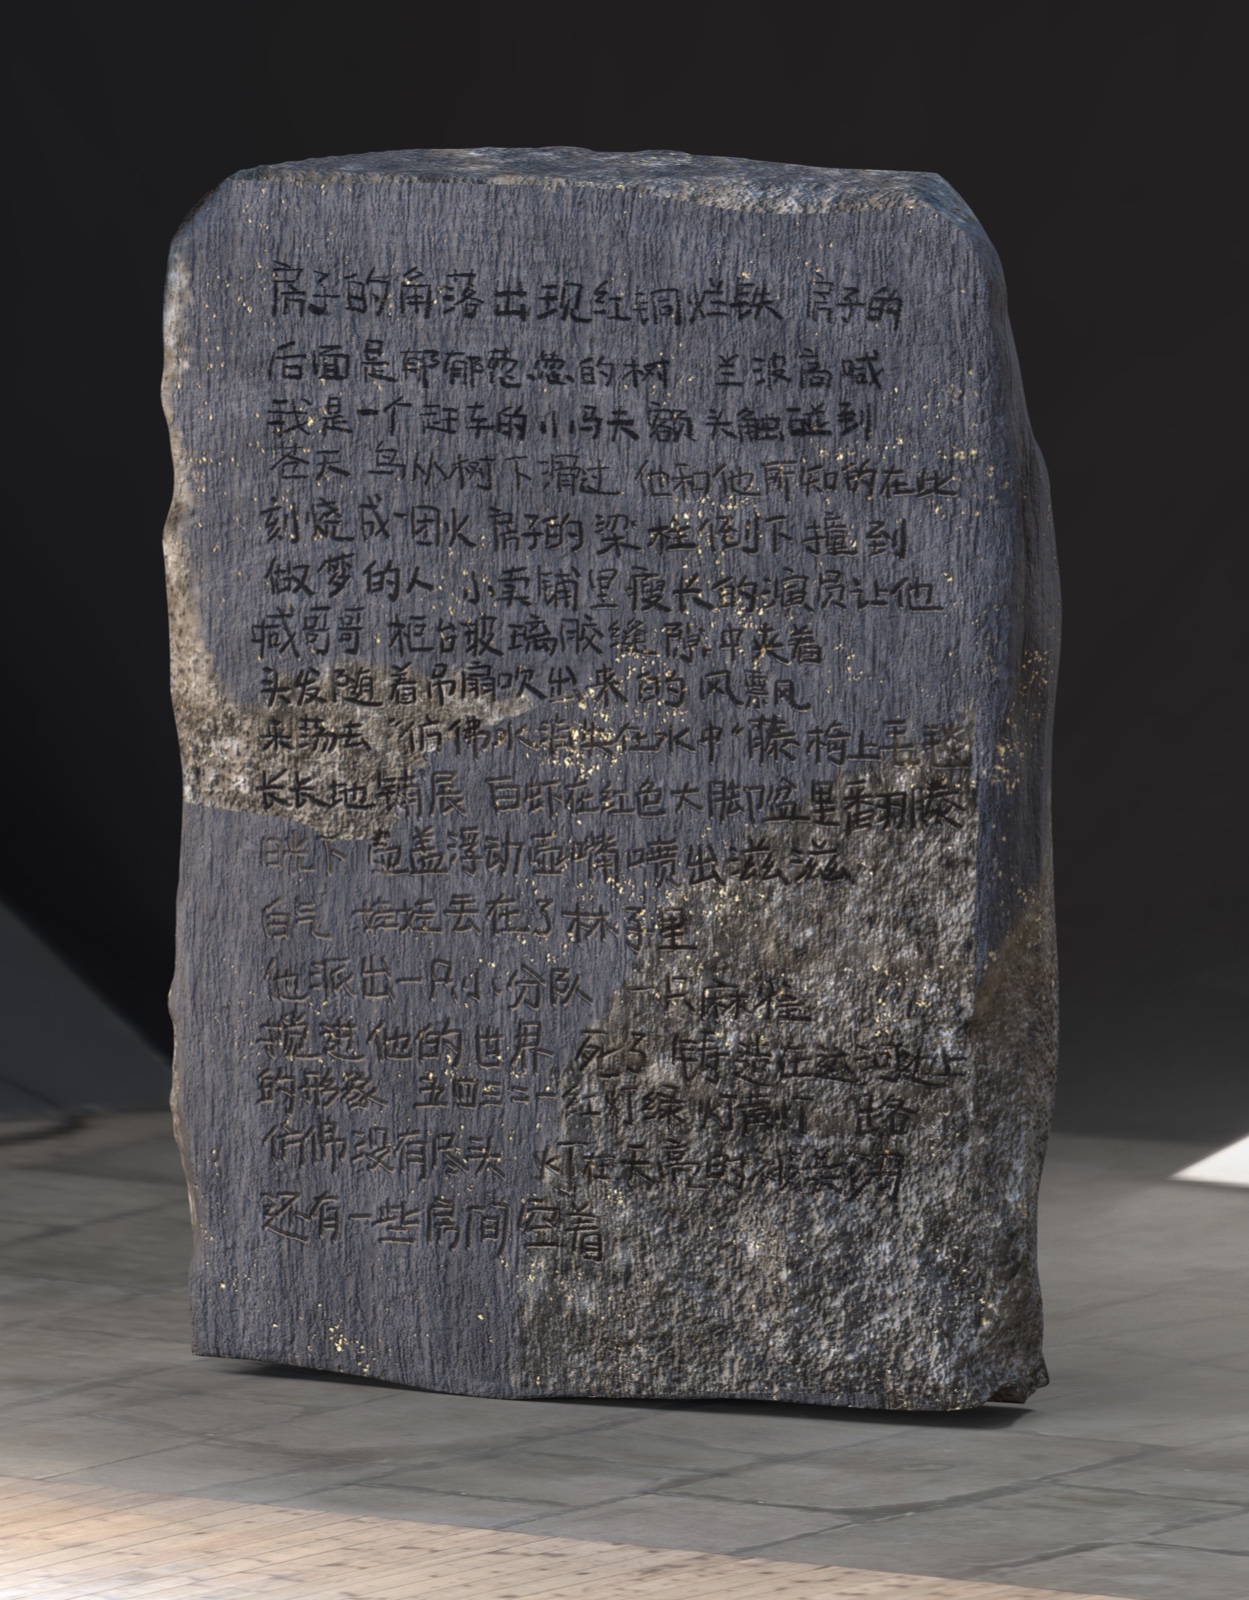 房子的角落出现红铜烂铁 房子的
后面是郁郁葱葱的树 兰波高喊
我是一个赶车的小马夫 额头触碰到
苍天 鸟从树下滑过 他和他所知的在此
刻烧成一团火 房子的梁柱倒下撞到
做梦的人 小卖铺里瘦长的演员让他
喊哥哥 柜台玻璃胶缝隙中夹着
头发随着吊扇吹出来的风飘
来荡去 仿佛水 在水中 藤椅上毛毯
长长地铺展 白虾在红色大脚盆里翻腾
阳光下 壶盖浮动壶嘴喷出滋滋
白气 娃娃丢在了林子里
他派出一只小分队 一只麻雀
挽 他的世界 死了 铸造在这河边上
的形象 五四三二一 红灯绿灯 灯 路
仿佛没有尽头 灯在天亮的
还有一些房间空着